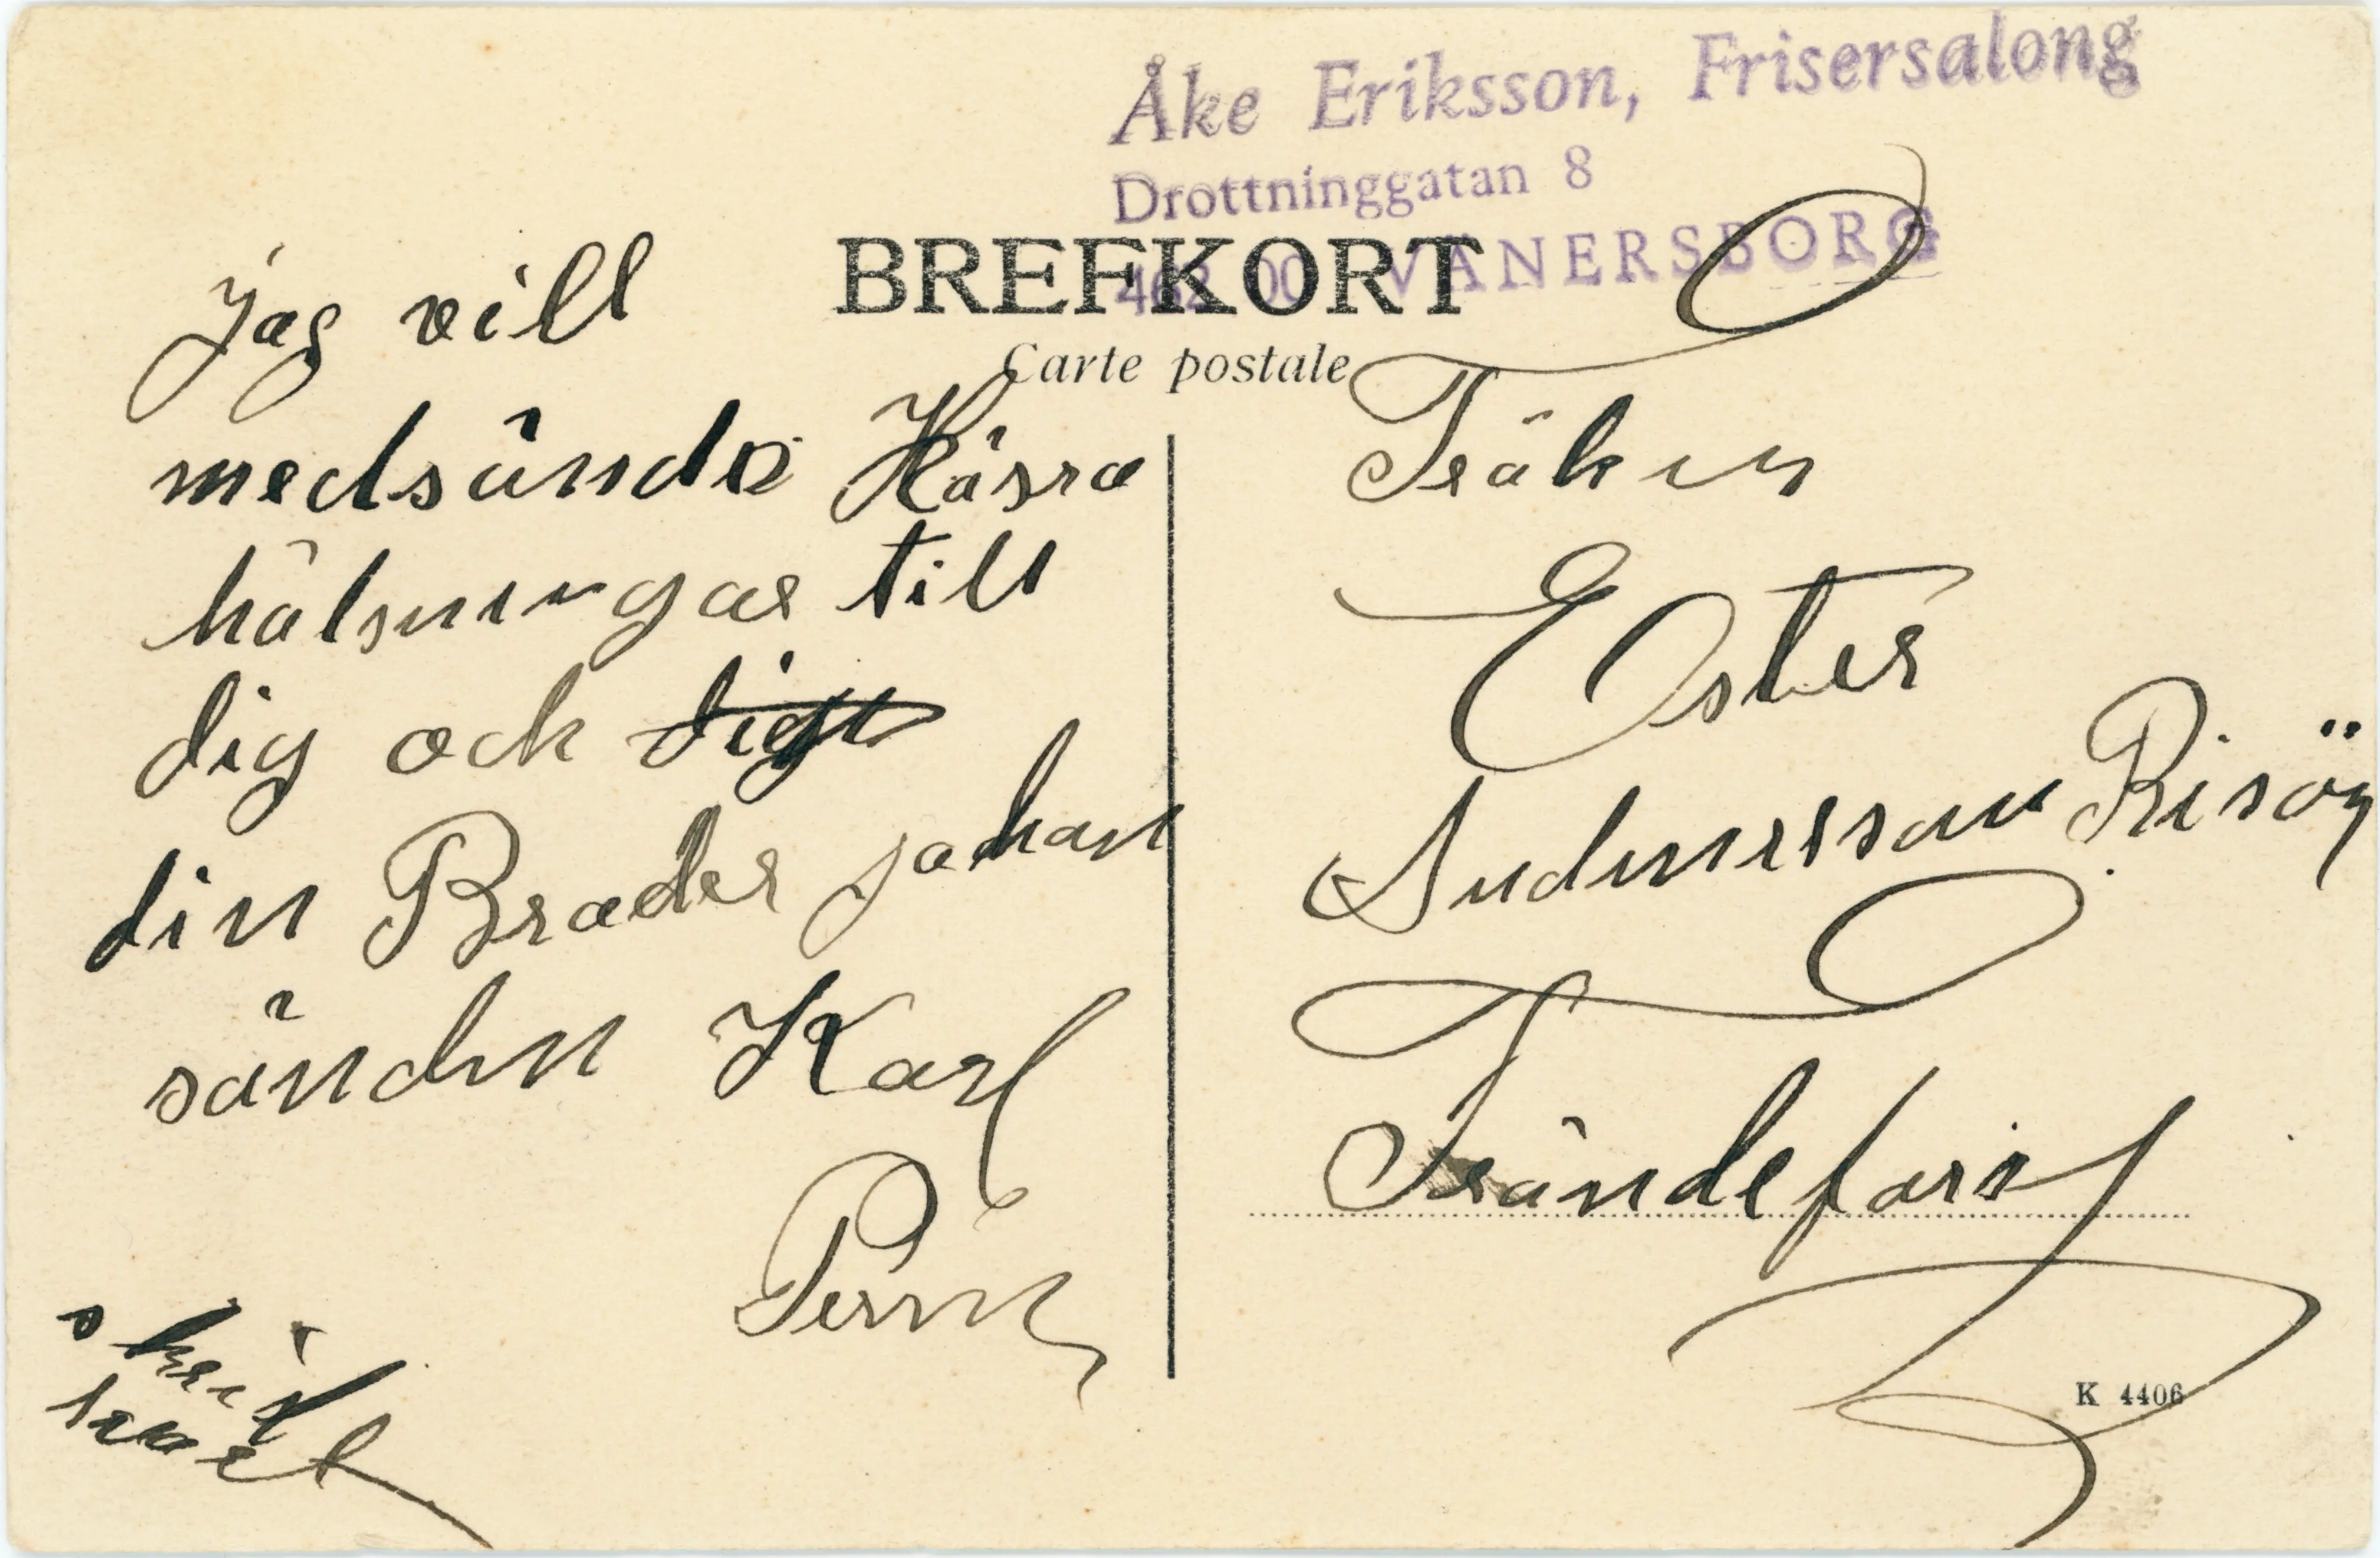 Åke Eriksson, Frisersalong
Drottninggatan 8
462 00 VÄNERSBORG
BREFKORT
Carte postale
Jag vill
medsända Kåsra
hälsningar till
dig och
din Brader johan
sänder Karl
Fröken
Ester
Andersson Risön
Frändefors
skrif
snart
K 4406